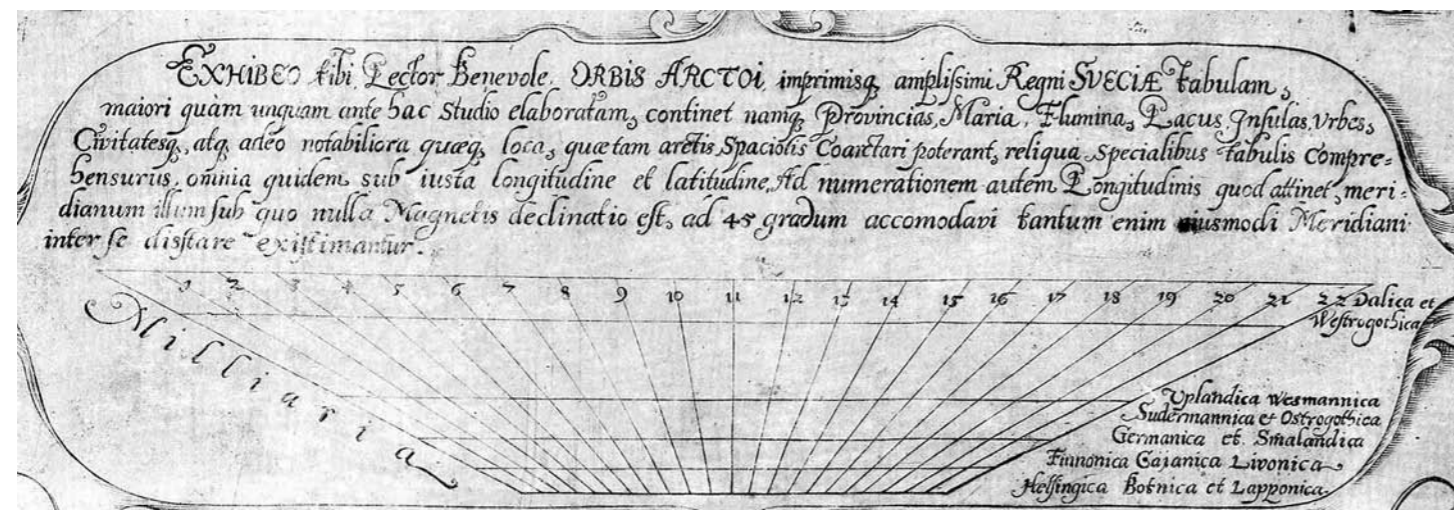 EXHIBEO tibi Lector Benevole. ORBIS ARCTOI, imprimisq, amplissimi Regni SVECIÆ tabulam,
maiori quàm unquam ante hac studio elaboratam, continet namq, Provincias, Maria, Flumina, Lacus Insulas, Vrbes,
Civitatesq, atq, adeo notabiliora quæq, loca, quæ tam arctis Spaciolis Coarctari poterant, reliqua Specialibus tabulis Compre=
hensurus, omnia quidem sub iusta longitudine et latitudine, Ad numerationem autem Longitudinis quod attinet, meri-
dianum illum sub quo nulla Magnetis declinatio est, ad 45 gradum accomodavi tantum enim eiusmodi Meridiani
inter se disstare existimantur.
1 2 3 4 5 6 7 8 9 10 11 12 13 14 15 16 17 18 19 20 21 22 Dalica et
Westrogothica
Milliaria
Uplandica Wesmannica
Sudermannica et Ostrogothica
Germanica et Smalandica
Finnonica Cajanica Livonica
Helsingica Botnica et Lapponica.